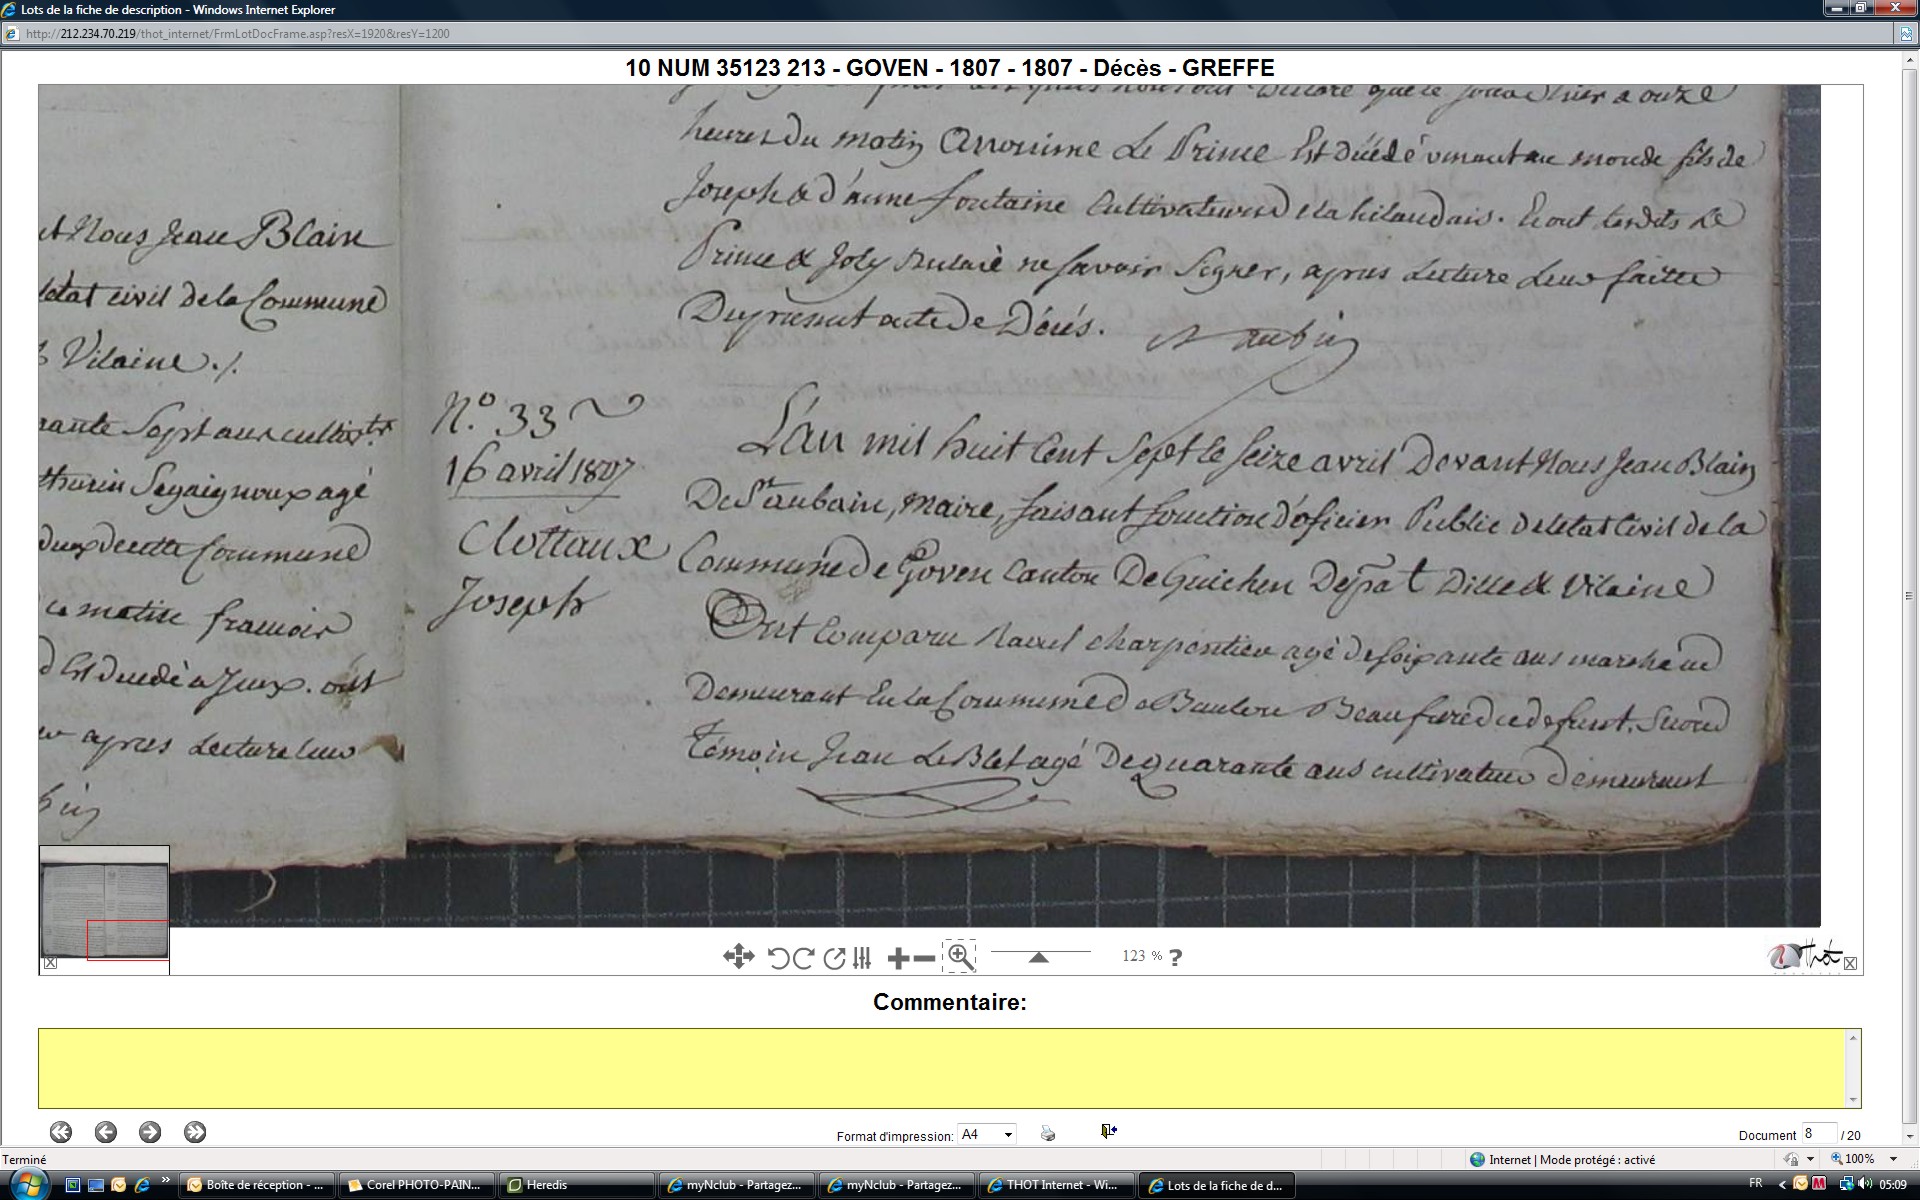 Lots de la fiche de description - Windows Internet Explorer
http://212.234.70.219/thot_internet/FrmLotDocFrame.asp?resX=1920&resY=1200
10 NUM 35123 213 - GOVEN - 1807 - 1807 - Décès - GREFFE
que le jour d'hier a onze
heures du matin Anonime Le Prince Est décédé venant au monde fils de
Joseph & d'anne fontaine Cultivateurs
Prince & Joly ne savoir Signer, apres Lecture Leur faitte
Du present acte de Décés.
Nous Jean Blain
letat civil de la Commune
Vilaine ./.
Sept ans
agé
Commune
françois
apres Lecture Leur
N.º 33
16 avril 1807
Clottaux
Joseph
L'an mil huit Cent Sept le Seize avril Devant Nous Jean Blain
De St aubain, Maire, faisant fonction d'oficier Public de letat Civil de la
Commune de Goven Canton De Guichen Depat Dille & Vilaine
Ont Comparu Raoul charpentier agé de soixante ans marchand
Demeurant En la Commune de Baulon Beaufrere du defunt, Second
Témoin Jean Le Blet agé De quarante ans cultivateur demeurant
123 %
?
Thot
Commentaire:
Format d'impression: A4
Document 8 / 20
Terminé
Internet | Mode protégé : activé
100%
Boîte de réception - ...
Corel PHOTO-PAIN...
Heredis
myNclub - Partagez...
myNclub - Partagez...
THOT Internet - Wi...
Lots de la fiche de d...
FR
05:09